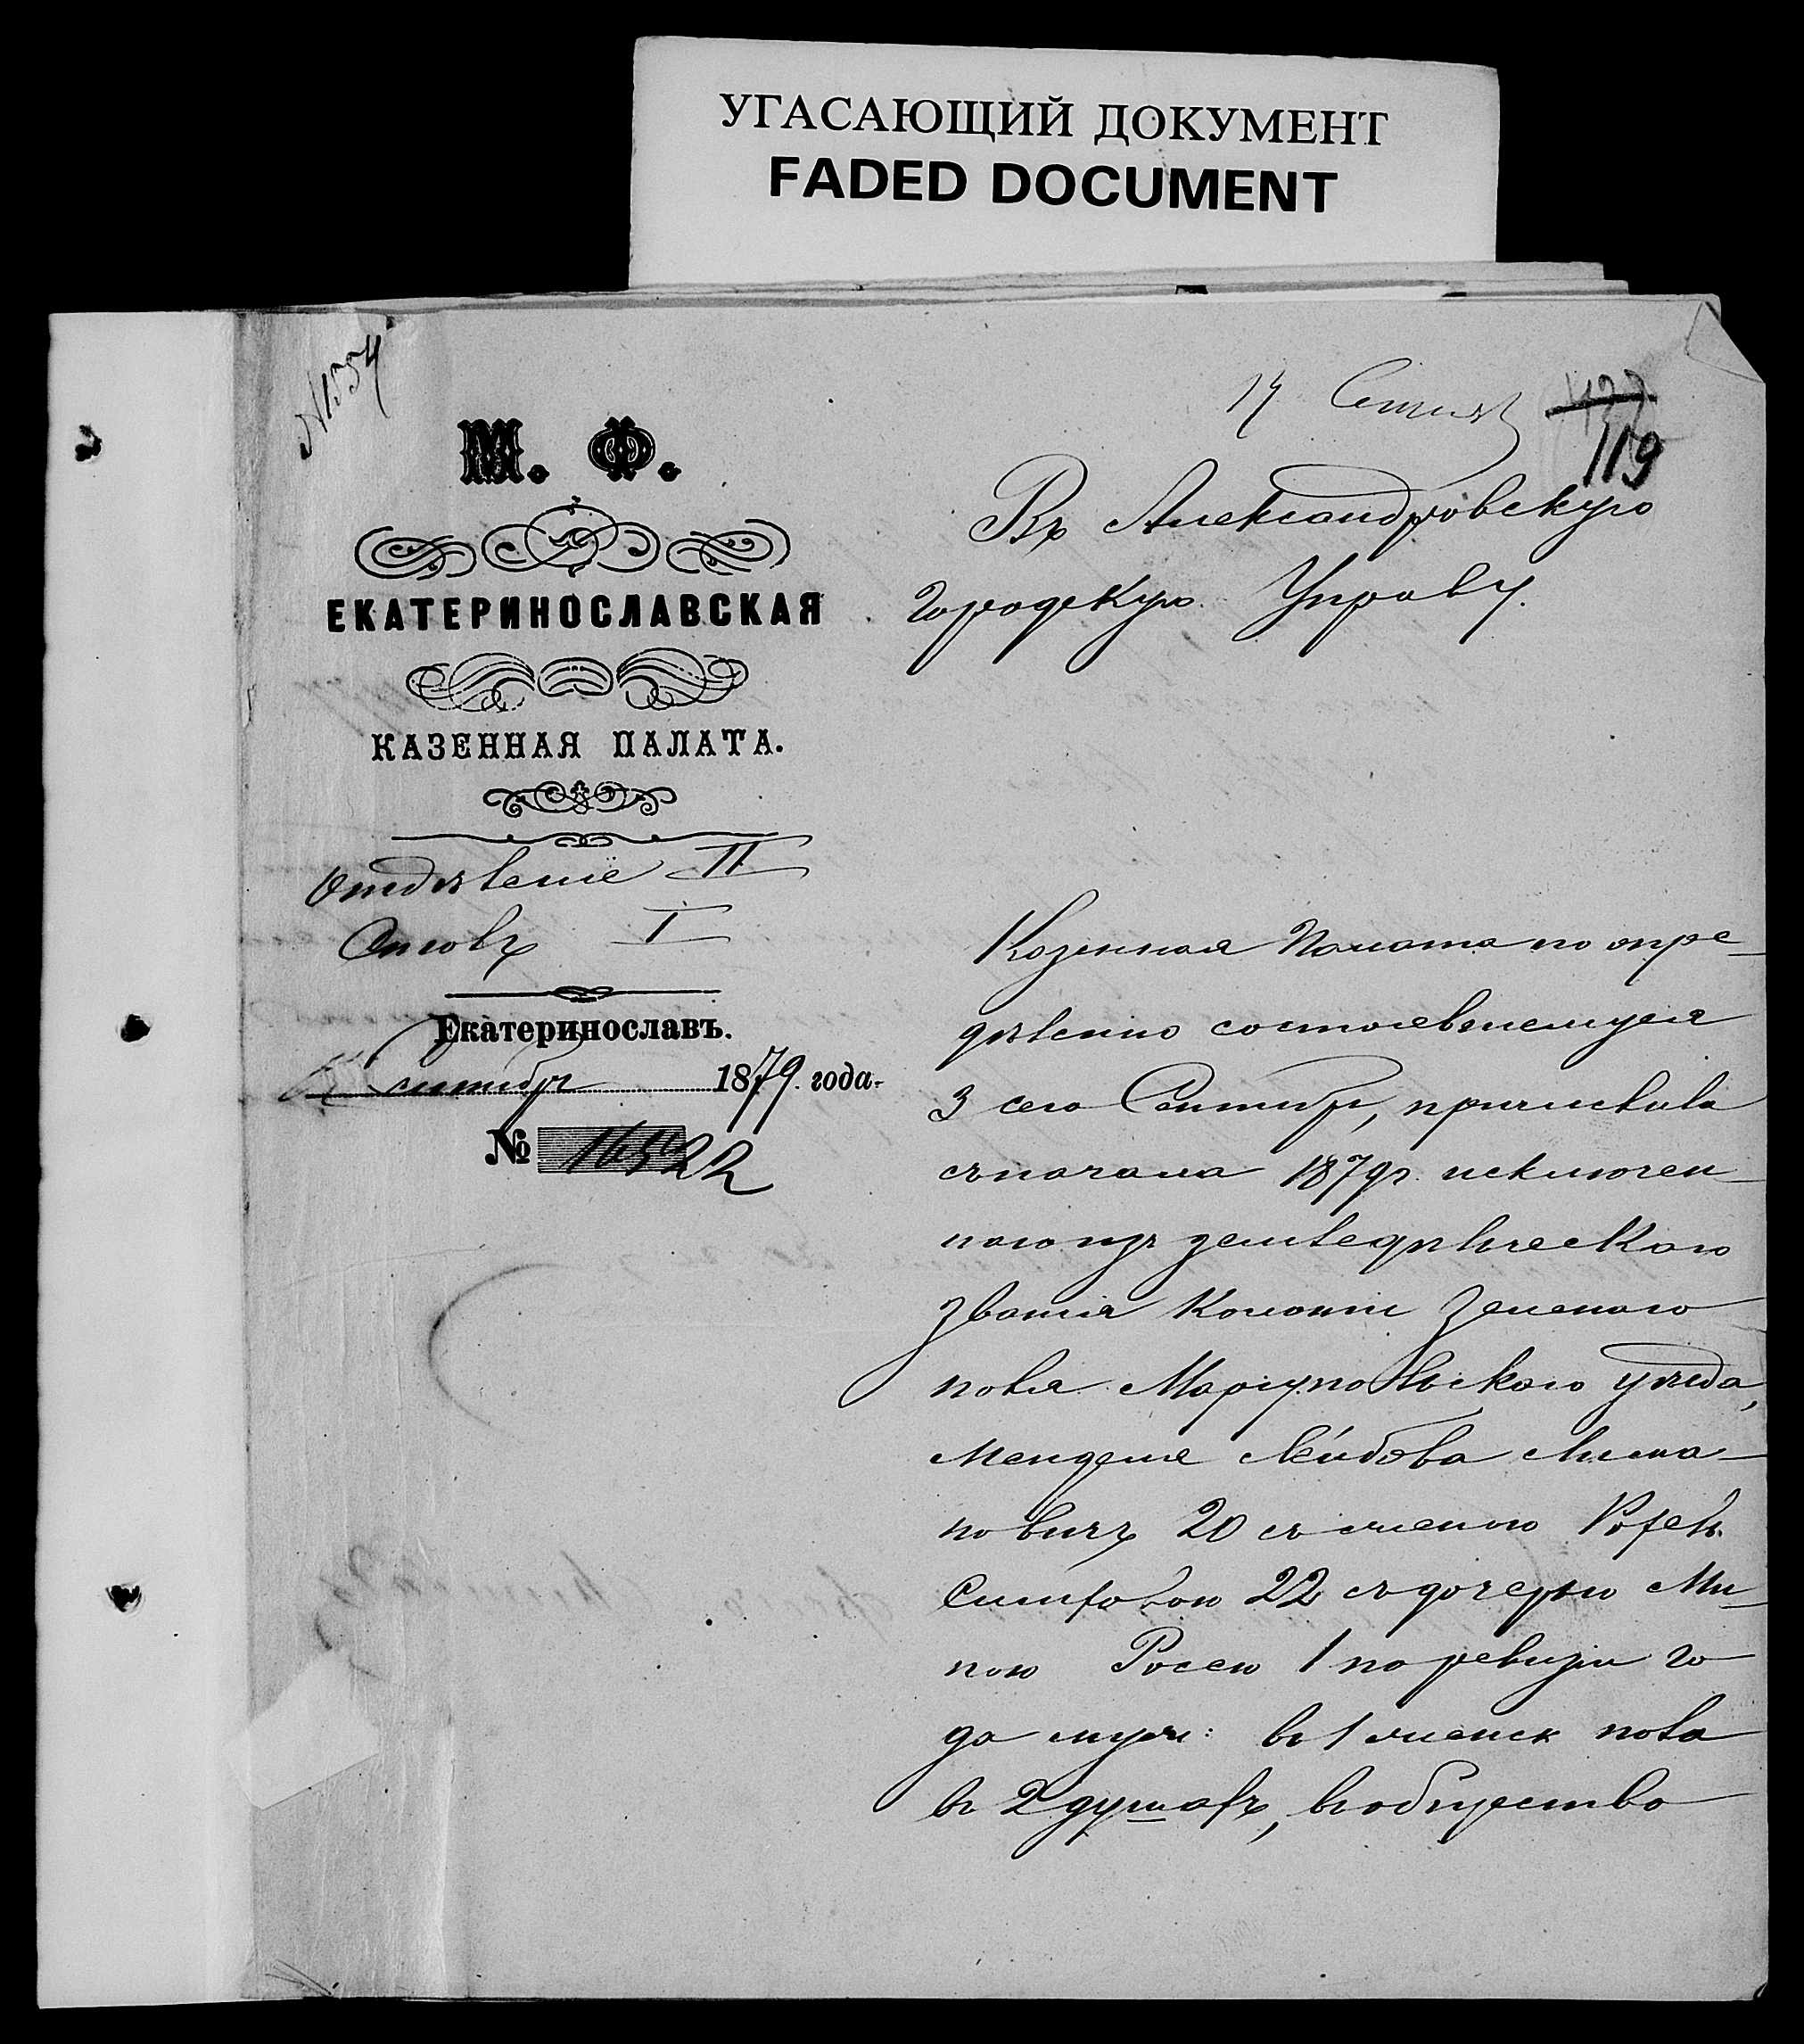 УГАСАЮЩИЙ ДОКУМЕНТ
FADED DOCUMENT
№1354
М. Ф.
ЕКАТЕРИНОСЛАВСКАЯ
КАЗЕННАЯ ПАЛАТА.
Отдѣленіе II
Столъ I
Екатеринославъ.
сентября 1879 года.
№ 16522
17 Сентяб
119
Въ Александровскую
Городскую Управу.
Казенная Палата по опре-
дѣленію состоявшемуся
3 сего Сентября, причислила
съ начала 1879 г. исключен-
наго изъ земледѣльческаго
званія колоніи Зеленаго
поля Маріупольскаго уѣзда,
Менделя Лейбова
20 съ женою
22 съ дочерью Ми-
ною Росею 1 по ревизіи го-
да муж: въ 1 женск пола
въ 2 душахъ, въ общество